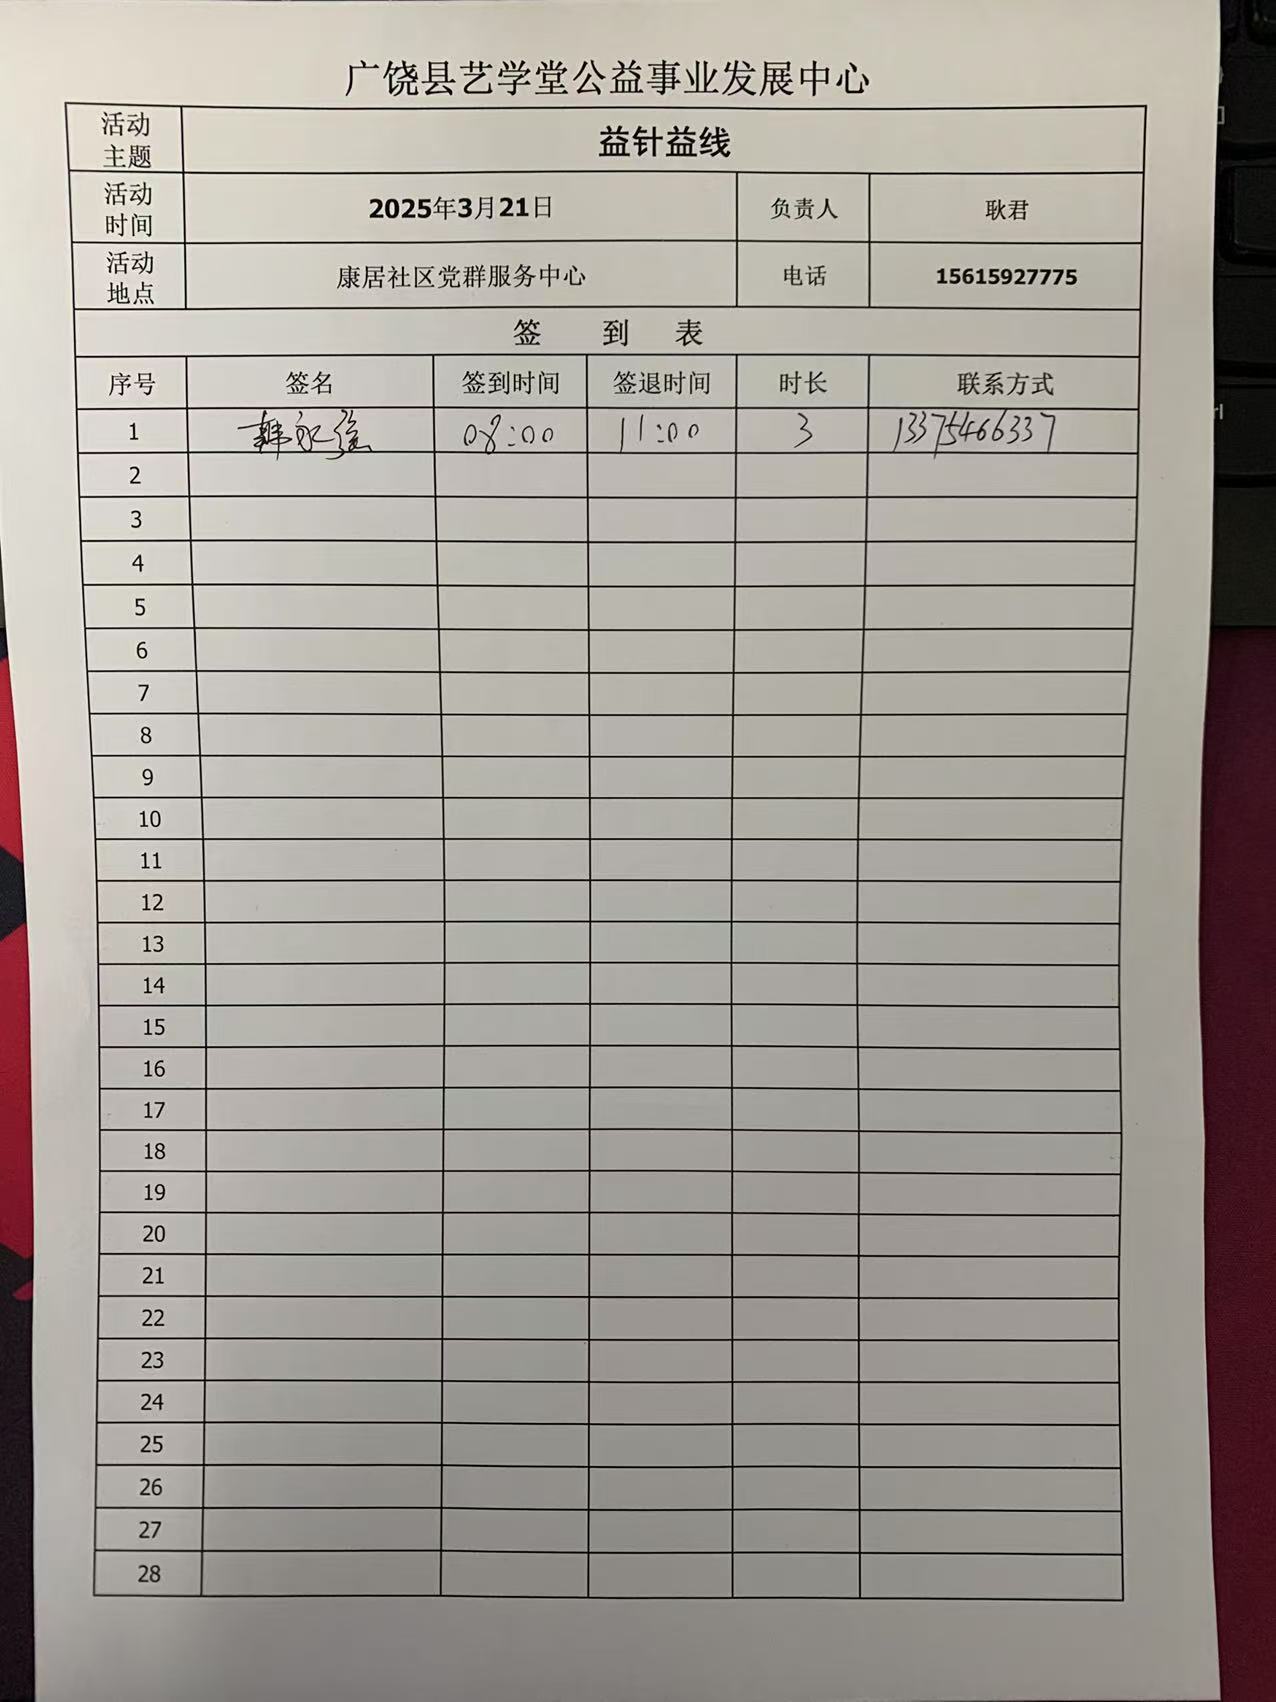 广饶县艺学堂公益事业发展中心
活动主题 益针益线
活动时间 2025年3月21日 负责人 耿君
活动地点 康居社区党群服务中心 电话 15615927775
签 到 表
序号 签名 签到时间 签退时间 时长 联系方式
1 韩永强 08:00 11:00 3 13375466337
2
3
4
5
6
7
8
9
10
11
12
13
14
15
16
17
18
19
20
21
22
23
24
25
26
27
28